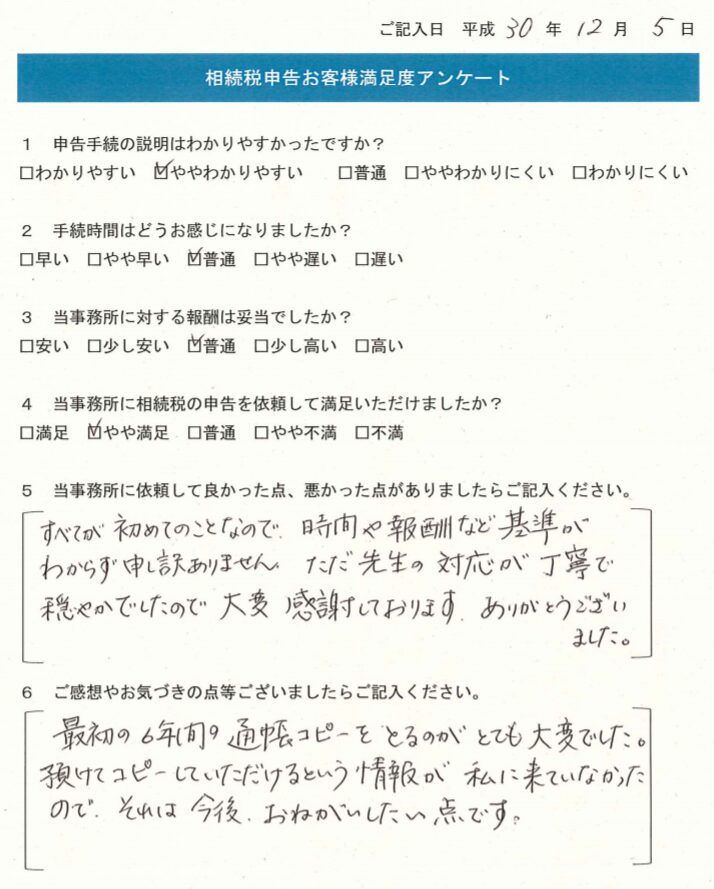 ご記入日 平成 30 年 12 月 5 日
相続税申告お客様満足度アンケート
1 申告手続の説明はわかりやすかったですか？
□わかりやすい ☑ややわかりやすい □普通 □ややわかりにくい □わかりにくい
2 手続時間はどうお感じになりましたか？
□早い □やや早い ☑普通 □やや遅い □遅い
3 当事務所に対する報酬は妥当でしたか？
□安い □少し安い ☑普通 □少し高い □高い
4 当事務所に相続税の申告を依頼して満足いただけましたか？
□満足 ☑やや満足 □普通 □やや不満 □不満
5 当事務所に依頼して良かった点、悪かった点がありましたらご記入ください。
すべてが初めてのことなので、時間や報酬など基準が
わからず申し訳ありません。ただ先生の対応が丁寧で
穏やかでしたので大変感謝しております。ありがとうござい
ました。
6 ご感想やお気づきの点等ございましたらご記入ください。
最初の6年間の通帳コピーをとるのがとても大変でした。
預けてコピーしていただけるという情報が私に来ていなかった
ので、それは今後、おねがいしたい点です。